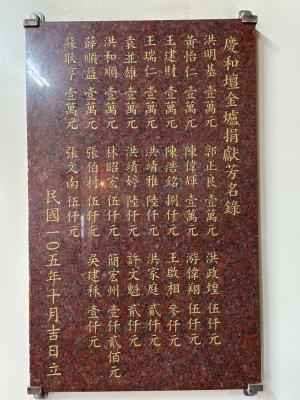 慶和壇金爐捐獻方名錄
洪明基 壹萬元 郭正良 壹萬元 洪政煌 伍仟元
黃怡仁 壹萬元 陳偉輝 壹萬元 游偉翔 伍仟元
王建財 壹萬元 陳浩銘 捌仟元 王啟相 參仟元
王瑞仁 壹萬元 洪靖雅 陸仟元 洪家庭 貳仟元
袁並雄 壹萬元 洪靖婷 陸仟元 許文魁 貳仟元
洪和順 壹萬元 林昭宏 伍仟元 簡宏州 壹仟貳佰元
薛順益 壹萬元 張伯村 伍仟元 吳建秣 壹仟元
蘇耿亨 壹萬元 張文南 伍仟元
民國一0五年十月吉日立